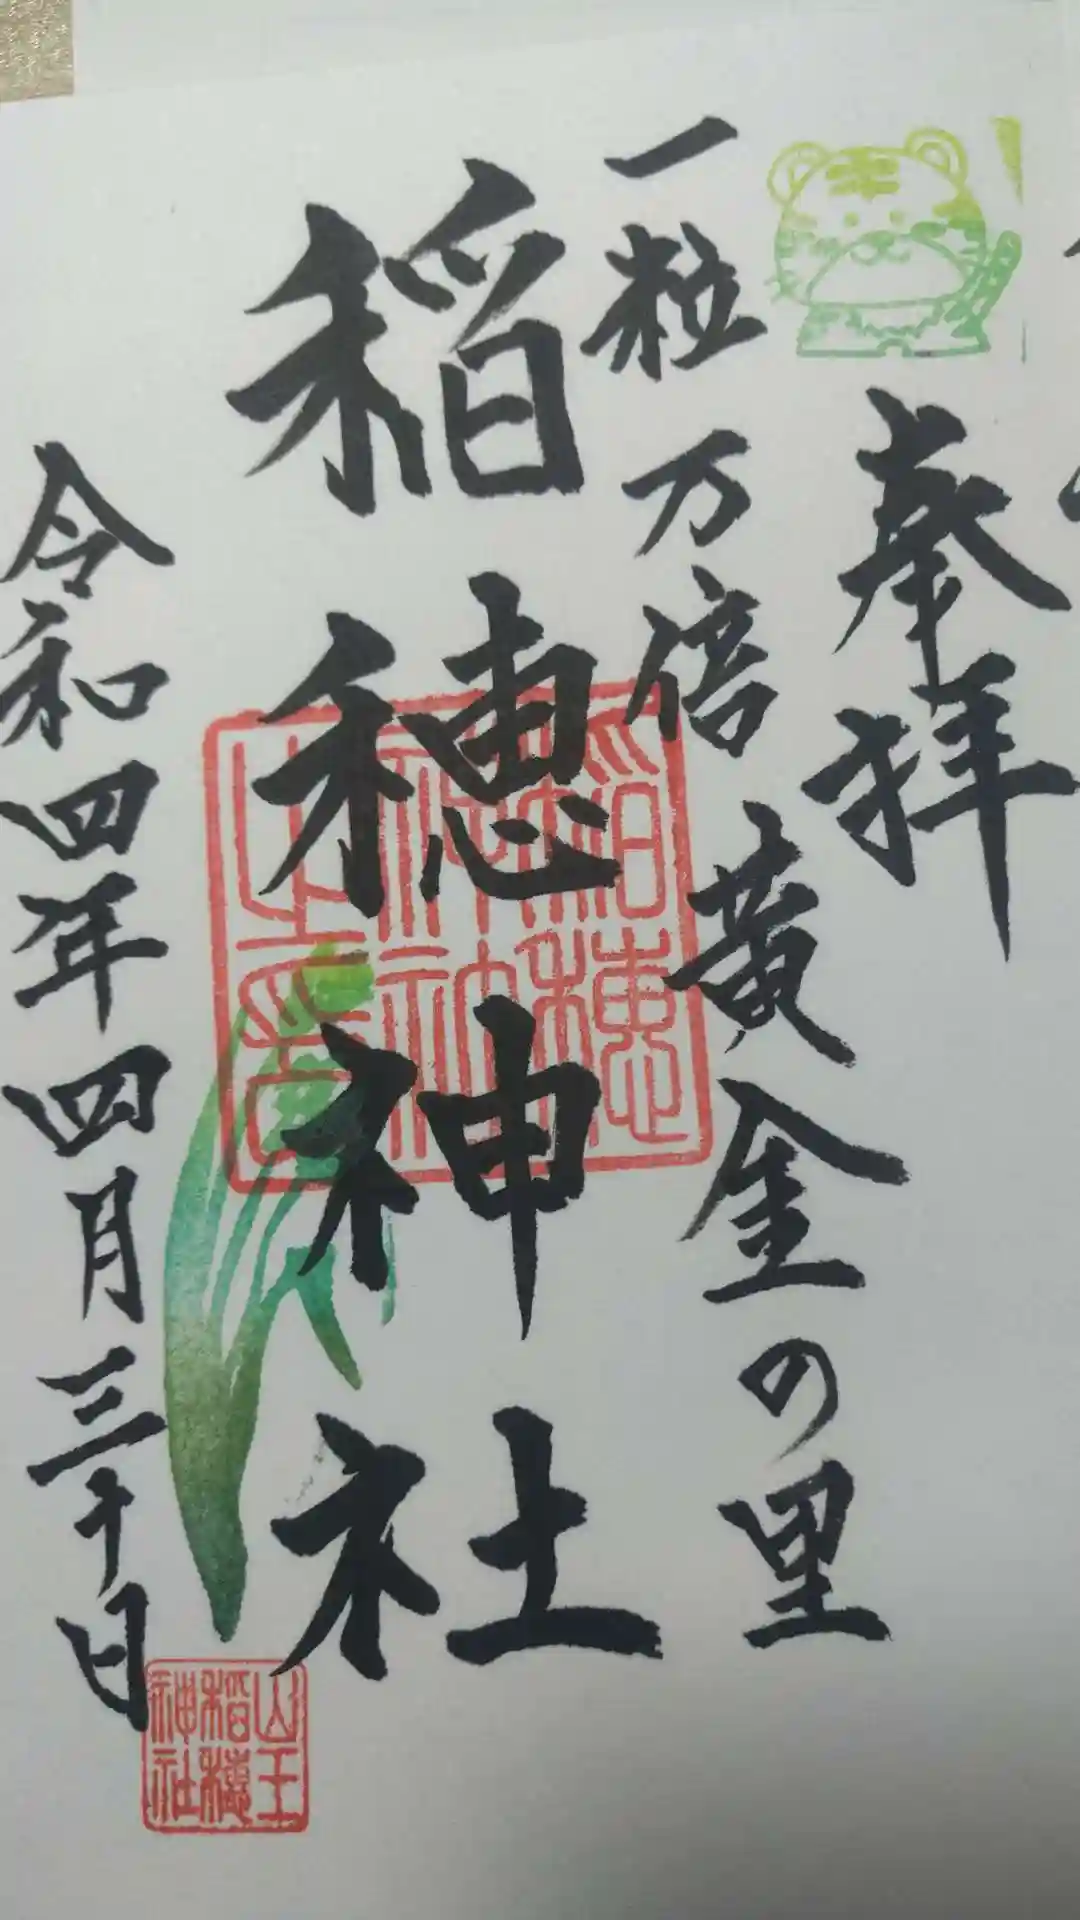 奉拝
一粒万倍 黄金の里
稲穂神社
稲穂
神社
之印
令和四年四月三十日
山王
稲穂
神社